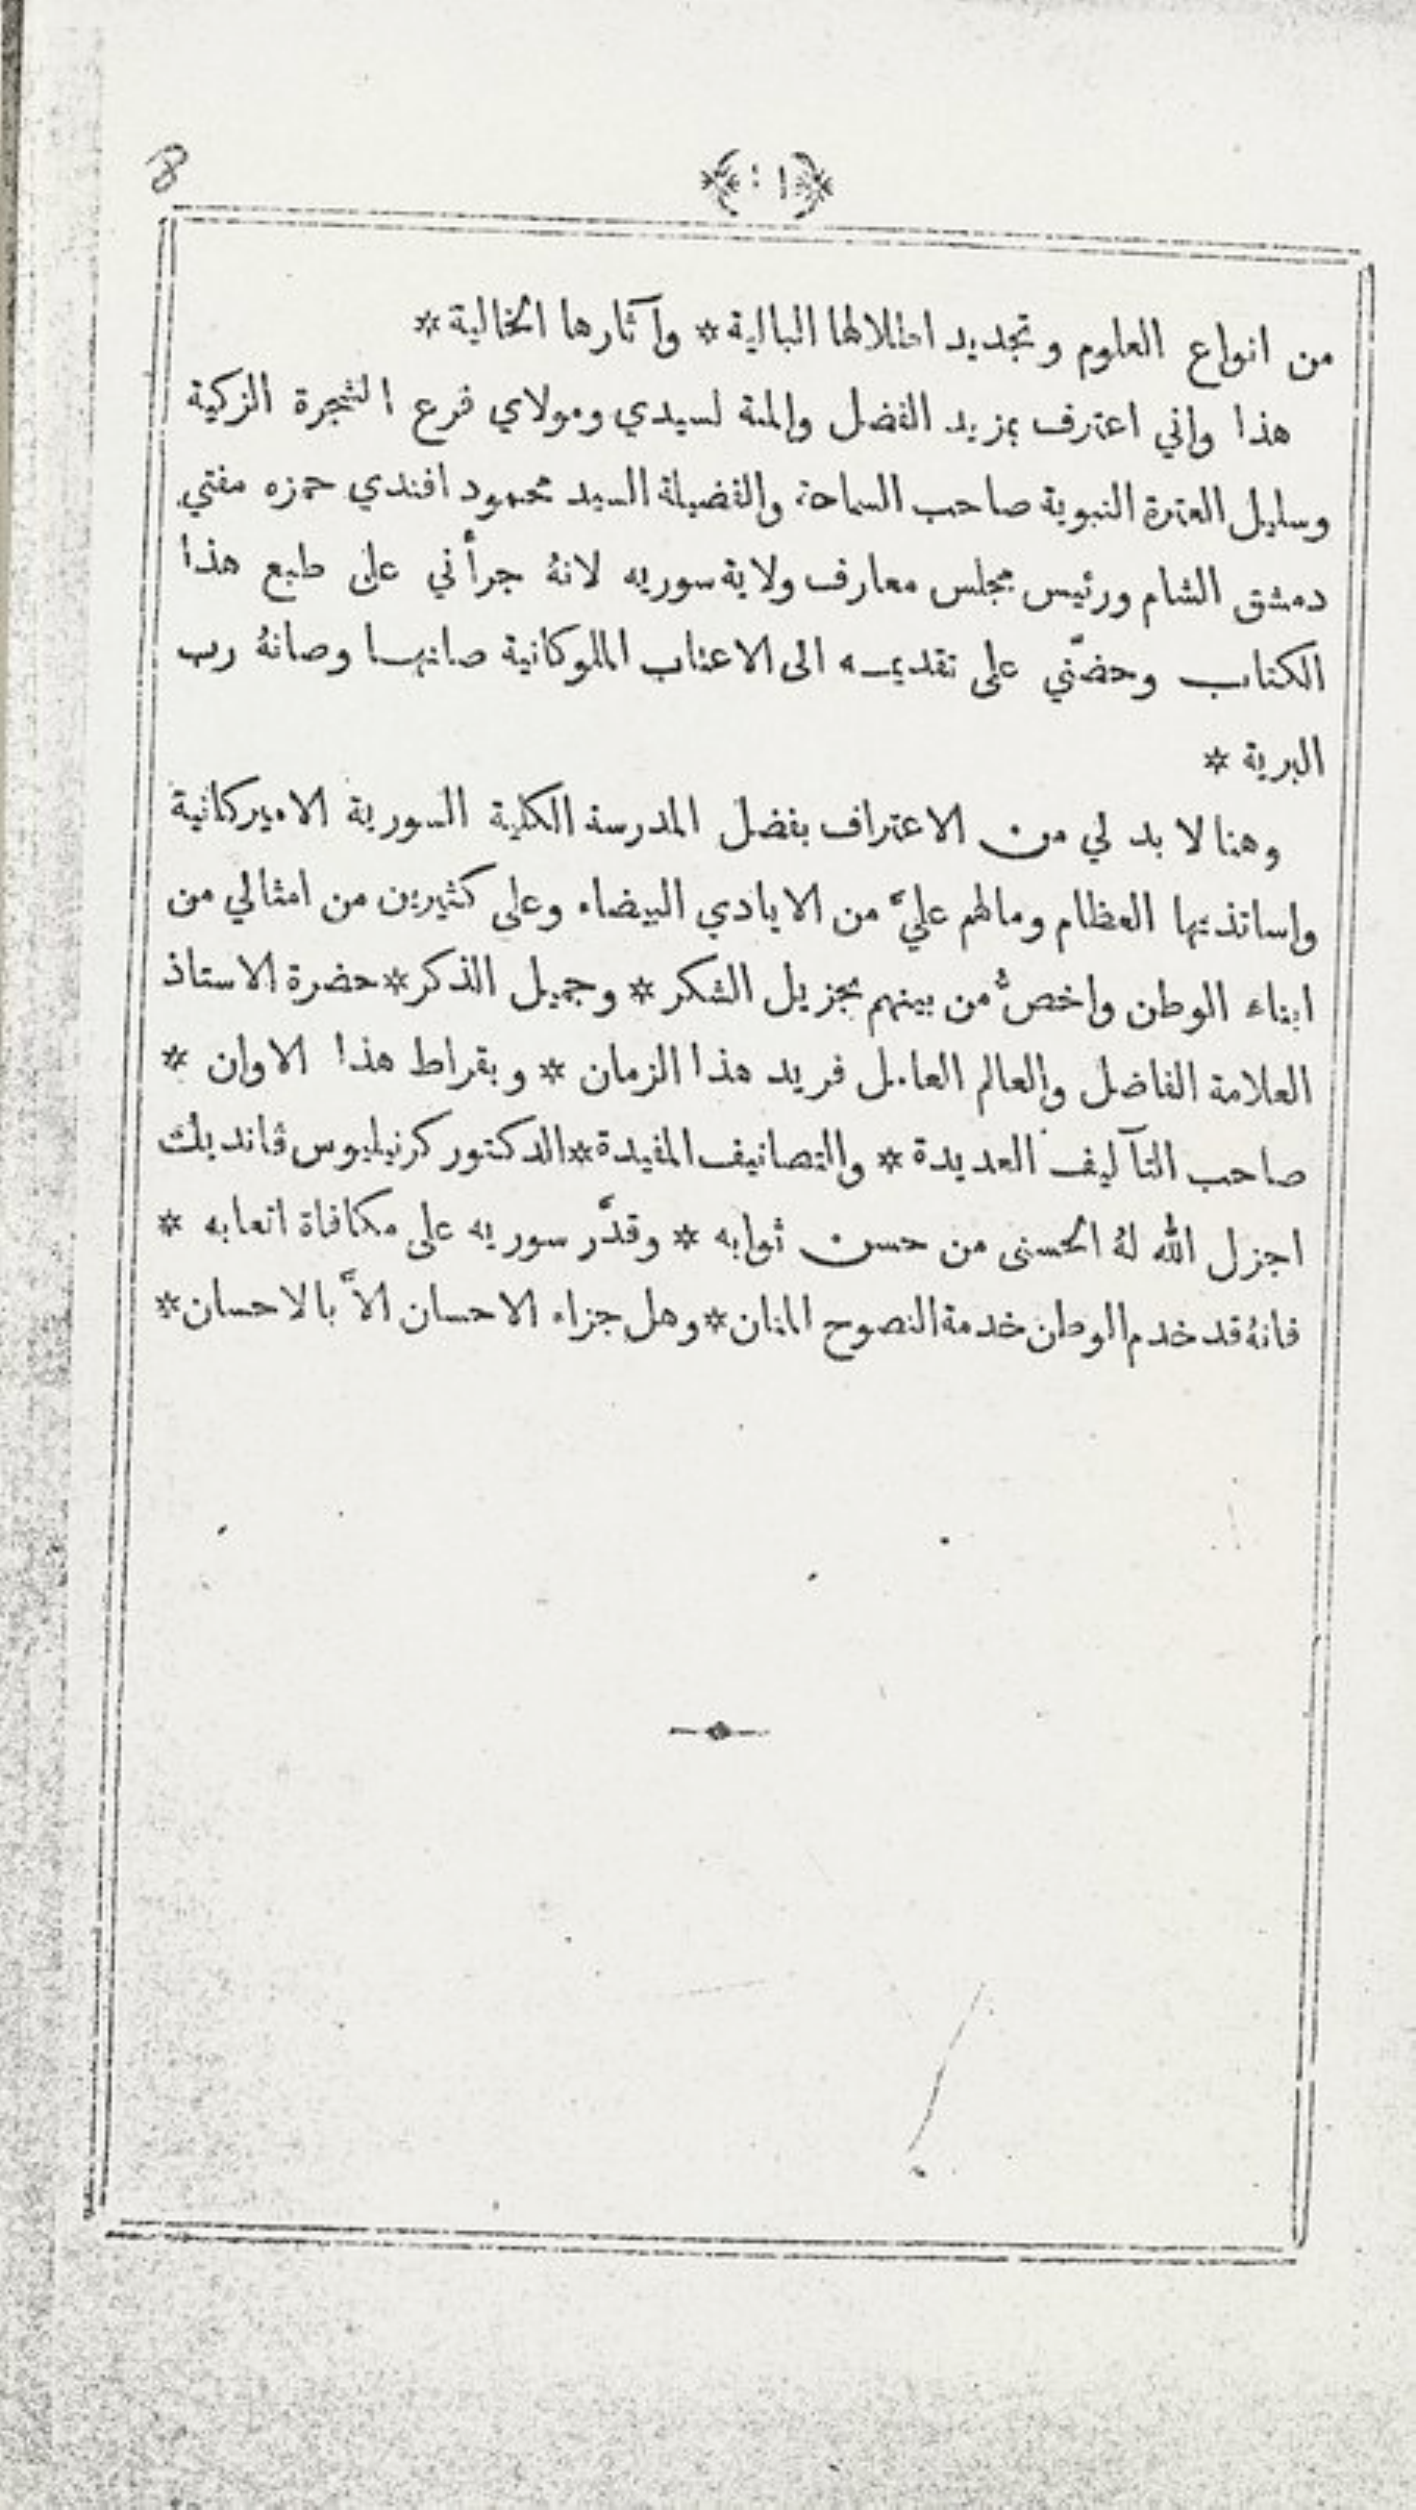 8
من انواع العلوم وتجديد اطلالها البالية * وآثارها الخالية *
هذا واني اعترف بمزيد الفضل والمنة لسيدي ومولاي فرع الشجرة الزكية
وسليل العترة النبوية صاحب السماحة والفضيلة السيد محمود افندي حمزه مفتي
دمشق الشام ورئيس مجلس معارف ولاية سوريه لانهُ جرأني على طبع هذا
الكتاب وحضَّني على تقديمه الى الاعتاب الملوكانية صانها وصانهُ رب
البرية *
وهنا لا بد لي من الاعتراف بفضل المدرسة الكلية السورية الاميركانية
واساتذتها العظام وما لهم عليَّ من الايادي البيضاء وعلى كثيرين من امثالي من
ابناء الوطن واخصُّ من بينهم بجزيل الشكر * وجميل الذكر * حضرة الاستاذ
العلامة الفاضل والعالم العامل فريد هذا الزمان * وبقراط هذا الاوان *
صاحب التآليف العديدة * والتصانيف المفيدة * الدكتور كرنيليوس ڤانديك
اجزل الله لهُ الحسنى من حسن ثوابه * وقدَّر سوريه على مكافاة اتعابه *
فانهُ قد خدم الوطن خدمة النصوح المنان * وهل جزاء الاحسان الاَّ بالاحسان *